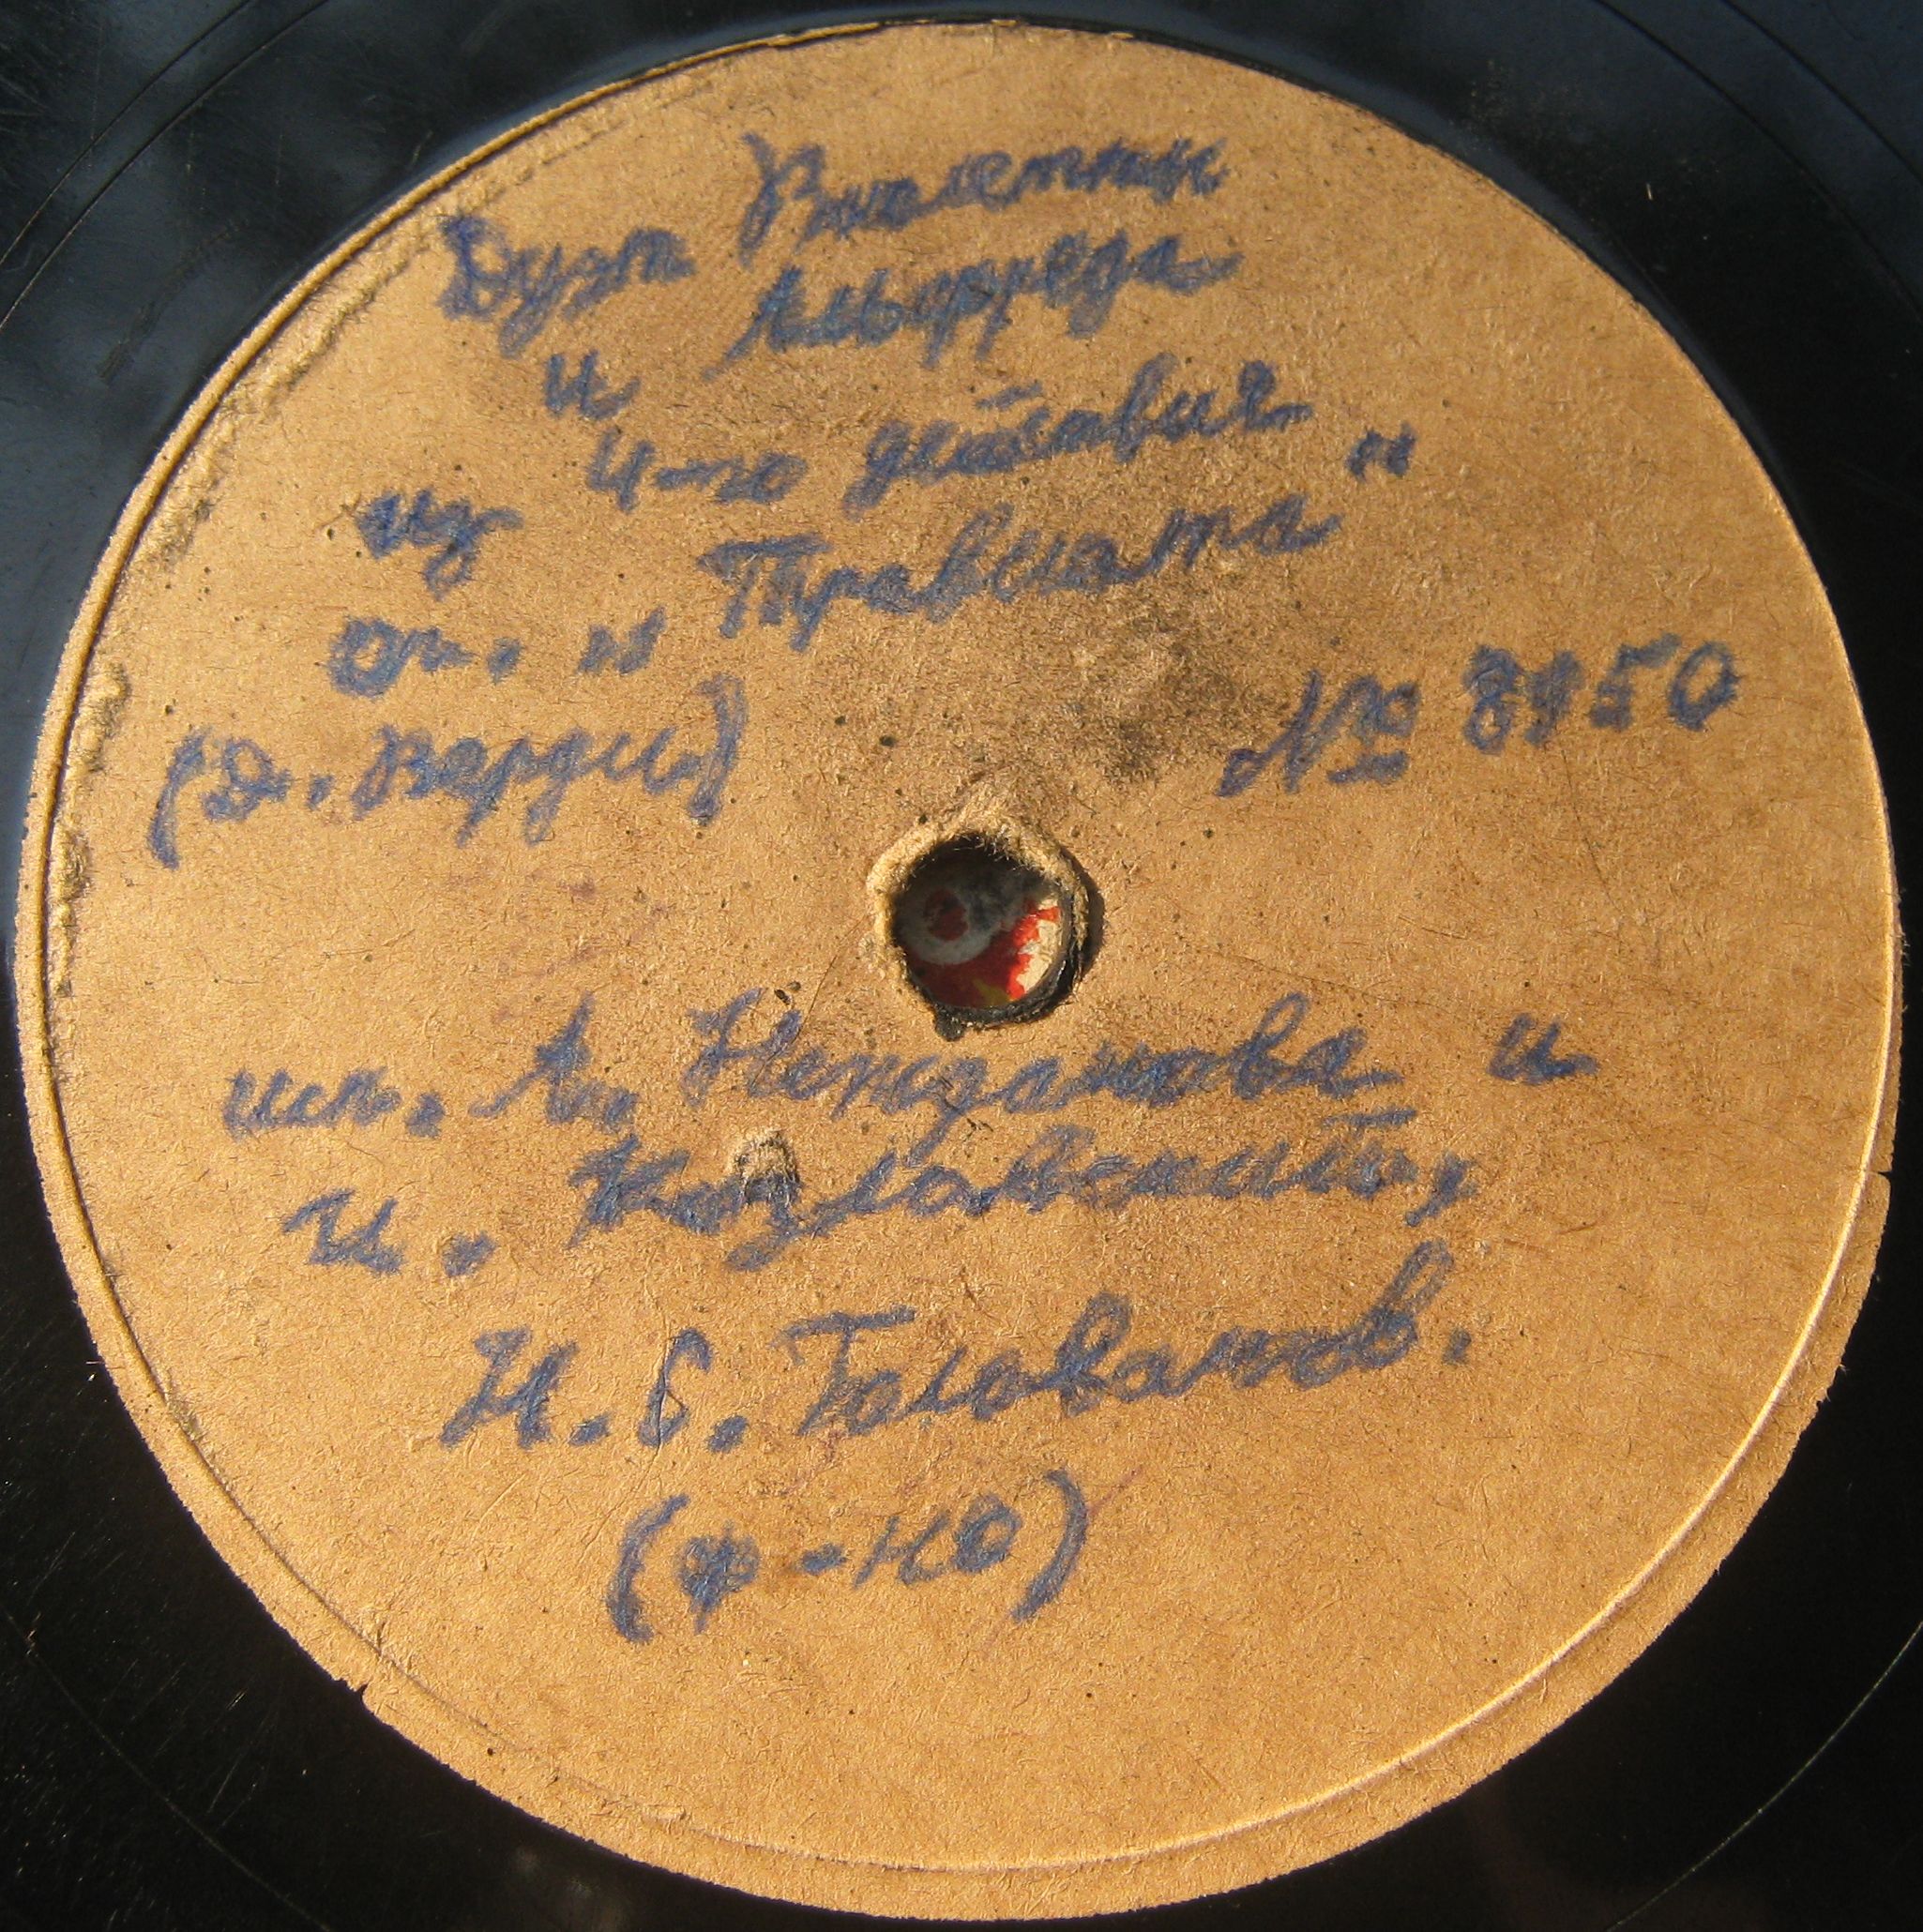 Дуэт Виолетты
и Альфреда
из 4-го действия
оп. "Травиата"
(Д. Верди)
№ 8950
исп. А. Нежданова и
И. Козловский,
Н. С. Голованов.
(ф-но)